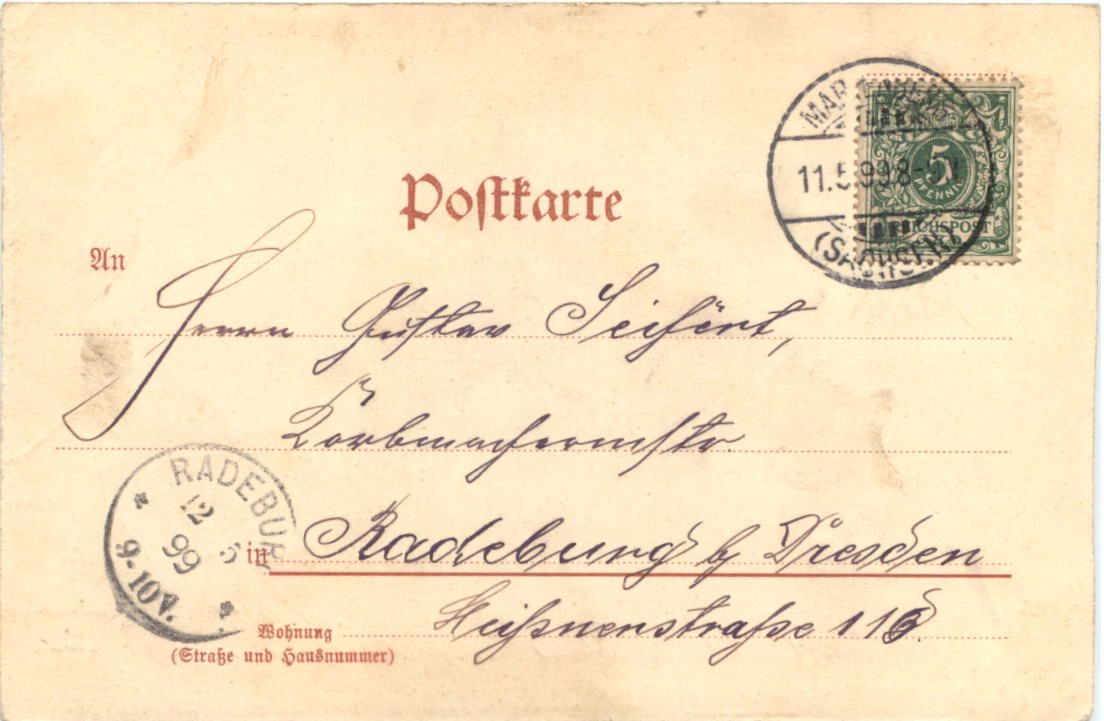 MARIENBERG
11.5.99 8-9V
(SACHSEN)
5
PFENNIG
REICHSPOST
Postkarte
An
Herrn Gustav Seifert,
Korbmachermstr.
RADEBURG
12 5
99
9-10V.
in Radeburg b/ Dresden
Meißnerstraße 116
Wohnung
(Straße und Hausnummer)